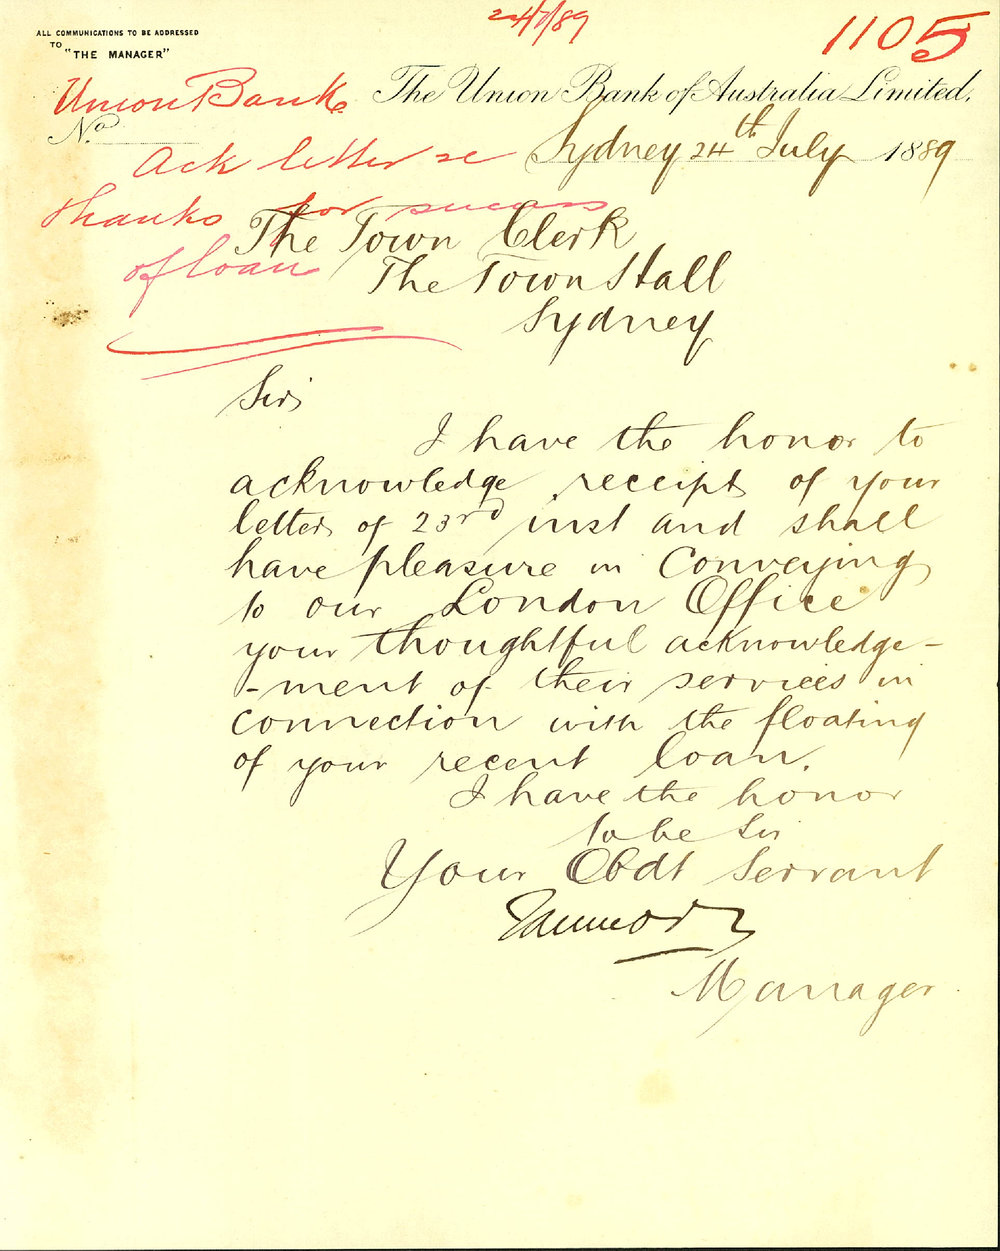 24/7/89
1105
ALL COMMUNICATIONS TO BE ADDRESSED
TO
"THE MANAGER"
Union Bank
The Union Bank of Australia Limited.
No
Sydney 24th July 1889
Ack letter re
thanks for success
of loan
The Town Clerk
The Town Hall
Sydney
Sir
I have the honor to
acknowledge receipt of your
letter of 23rd inst and shall
have pleasure in Conveying
to our London Office
your thoughtful acknowledge-
-ment of their services in
connection with the floating
of your recent loan.
I have the honor
to be Sir
Your Obdt Servant
Manager